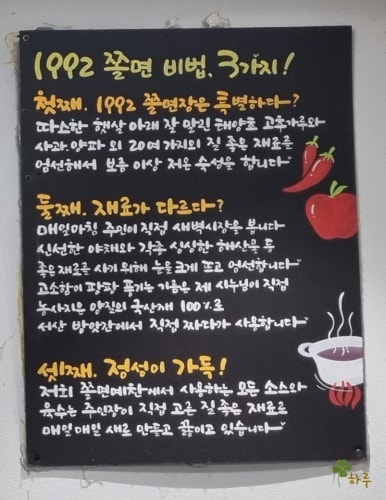 1992 쫄면 비법, 3가지!
첫째. 1992 쫄면장은 특별하다?
따스한 햇살 아래 잘 말린 태양초 고추가루와
사과, 양파 외 20여 가지의 질 좋은 재료를
엄선해서 보름 이상 저온 숙성을 합니다~
둘째. 재료가 다르다?
매일아침 주인이 직접 새벽시장을 봅니다
신선한 야채와 각종 싱싱한 해산물 등
좋은 재료를 사기 위해 눈을 크게 뜨고 엄선합니다~
고소함이 팡팡 풍기는 기름은 제 시누님이 직접
농사지은 양질의 국산깨 100%로
서산 방앗간에서 직접 짜다가 사용합니다~
셋째. 정성이 가득!
저희 쫄면예찬에서 사용하는 모든 소스와
육수는 주인장이 직접 고른 질 좋은 재료로
매일매일 새로 만들고 끓이고 있습니다~
하루